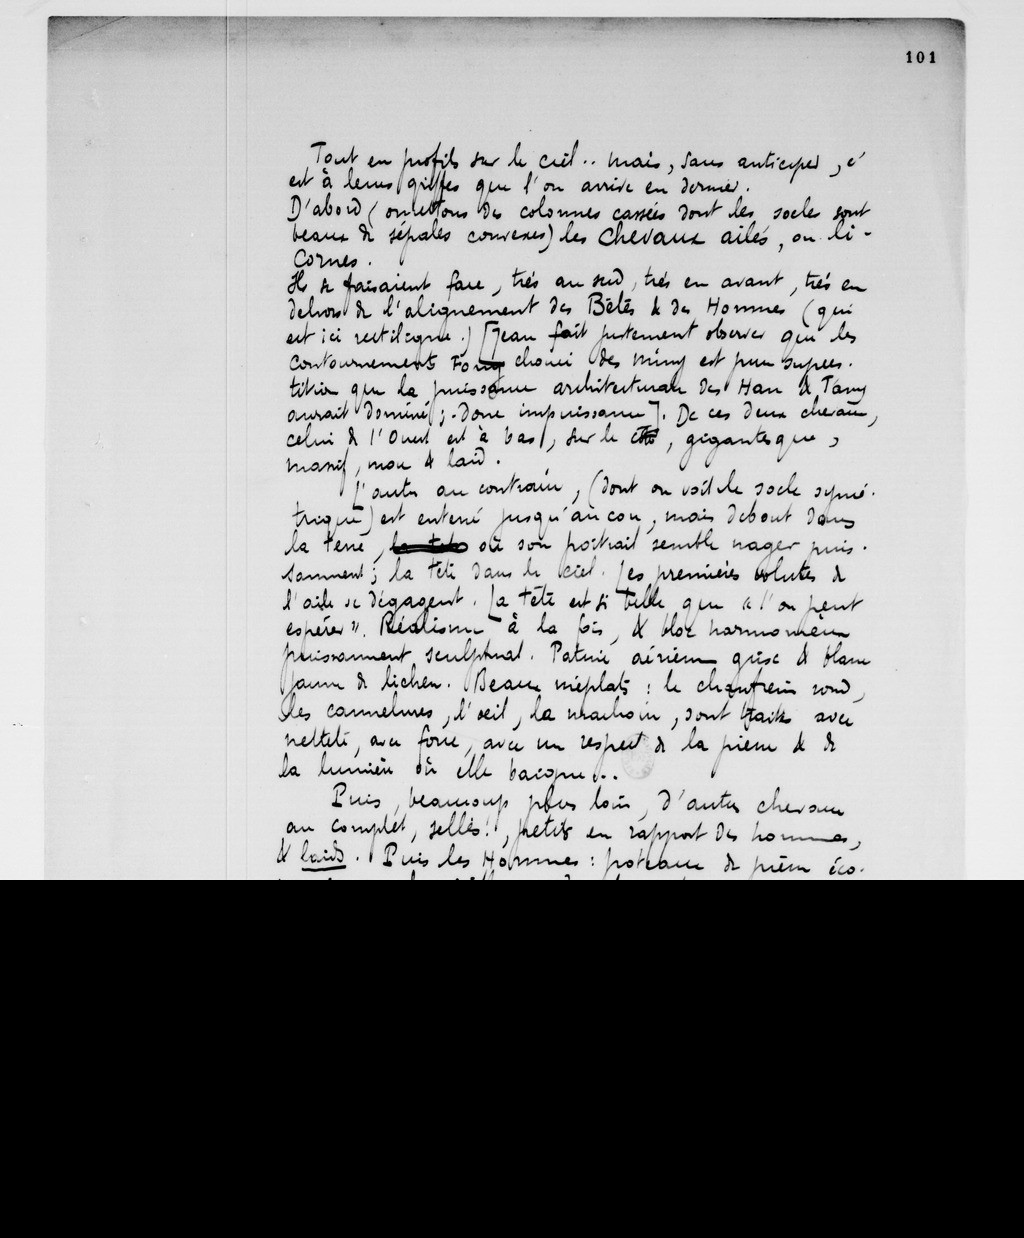 101
Tout en profils sur le ciel.. mais, sans anticiper, c'
est à leurs griffes que l'on arrive en dernier.
D'abord (omettons des colonnes cassées dont les socles sont
beaux de sépales convexes) les Chevaux ailés, ou li-
cornes.
Ils se faisaient face, très au sud, très en avant, très en
dehors de l'alignement des Bêtes & des Hommes (qui
est ici rectiligne.) [Jean fait justement observer que les
contournements Fong chouei des Ming est pure supers-
tition que la puissance architecturale des Han & T'ang
aurait dominé; - Donc impuissance]. De ces deux chevaux,
celui de l'Ouest est à bas, sur le côté, gigantesque,
massif, mou & laid.
L'autre au contraire, (dont on voit le socle symé-
trique) est enterré jusqu'au cou, mais debout dans
la terre, où son poitrail semble nager puis-
samment; la tête dans le ciel. Les premières volutes de
l'aile se dégagent. La tête est si belle que « l'on peut
espérer ». Réalisme à la fois, & bloc harmonieux
puissamment sculptural. Patine aérienne grise & blanc
jaune de lichen. Beaux méplats : le chanfrein rond,
les cannelures, l'œil, la machoire, sont traités avec
netteté, avec force, avec un respect de la pierre & de
la lumière où elle baigne...
Puis, beaucoup plus loin, d'autres chevaux
au complet, sellés!, petits en rapport des hommes,
& laids. Puis les Hommes : poteaux de pierre éco-